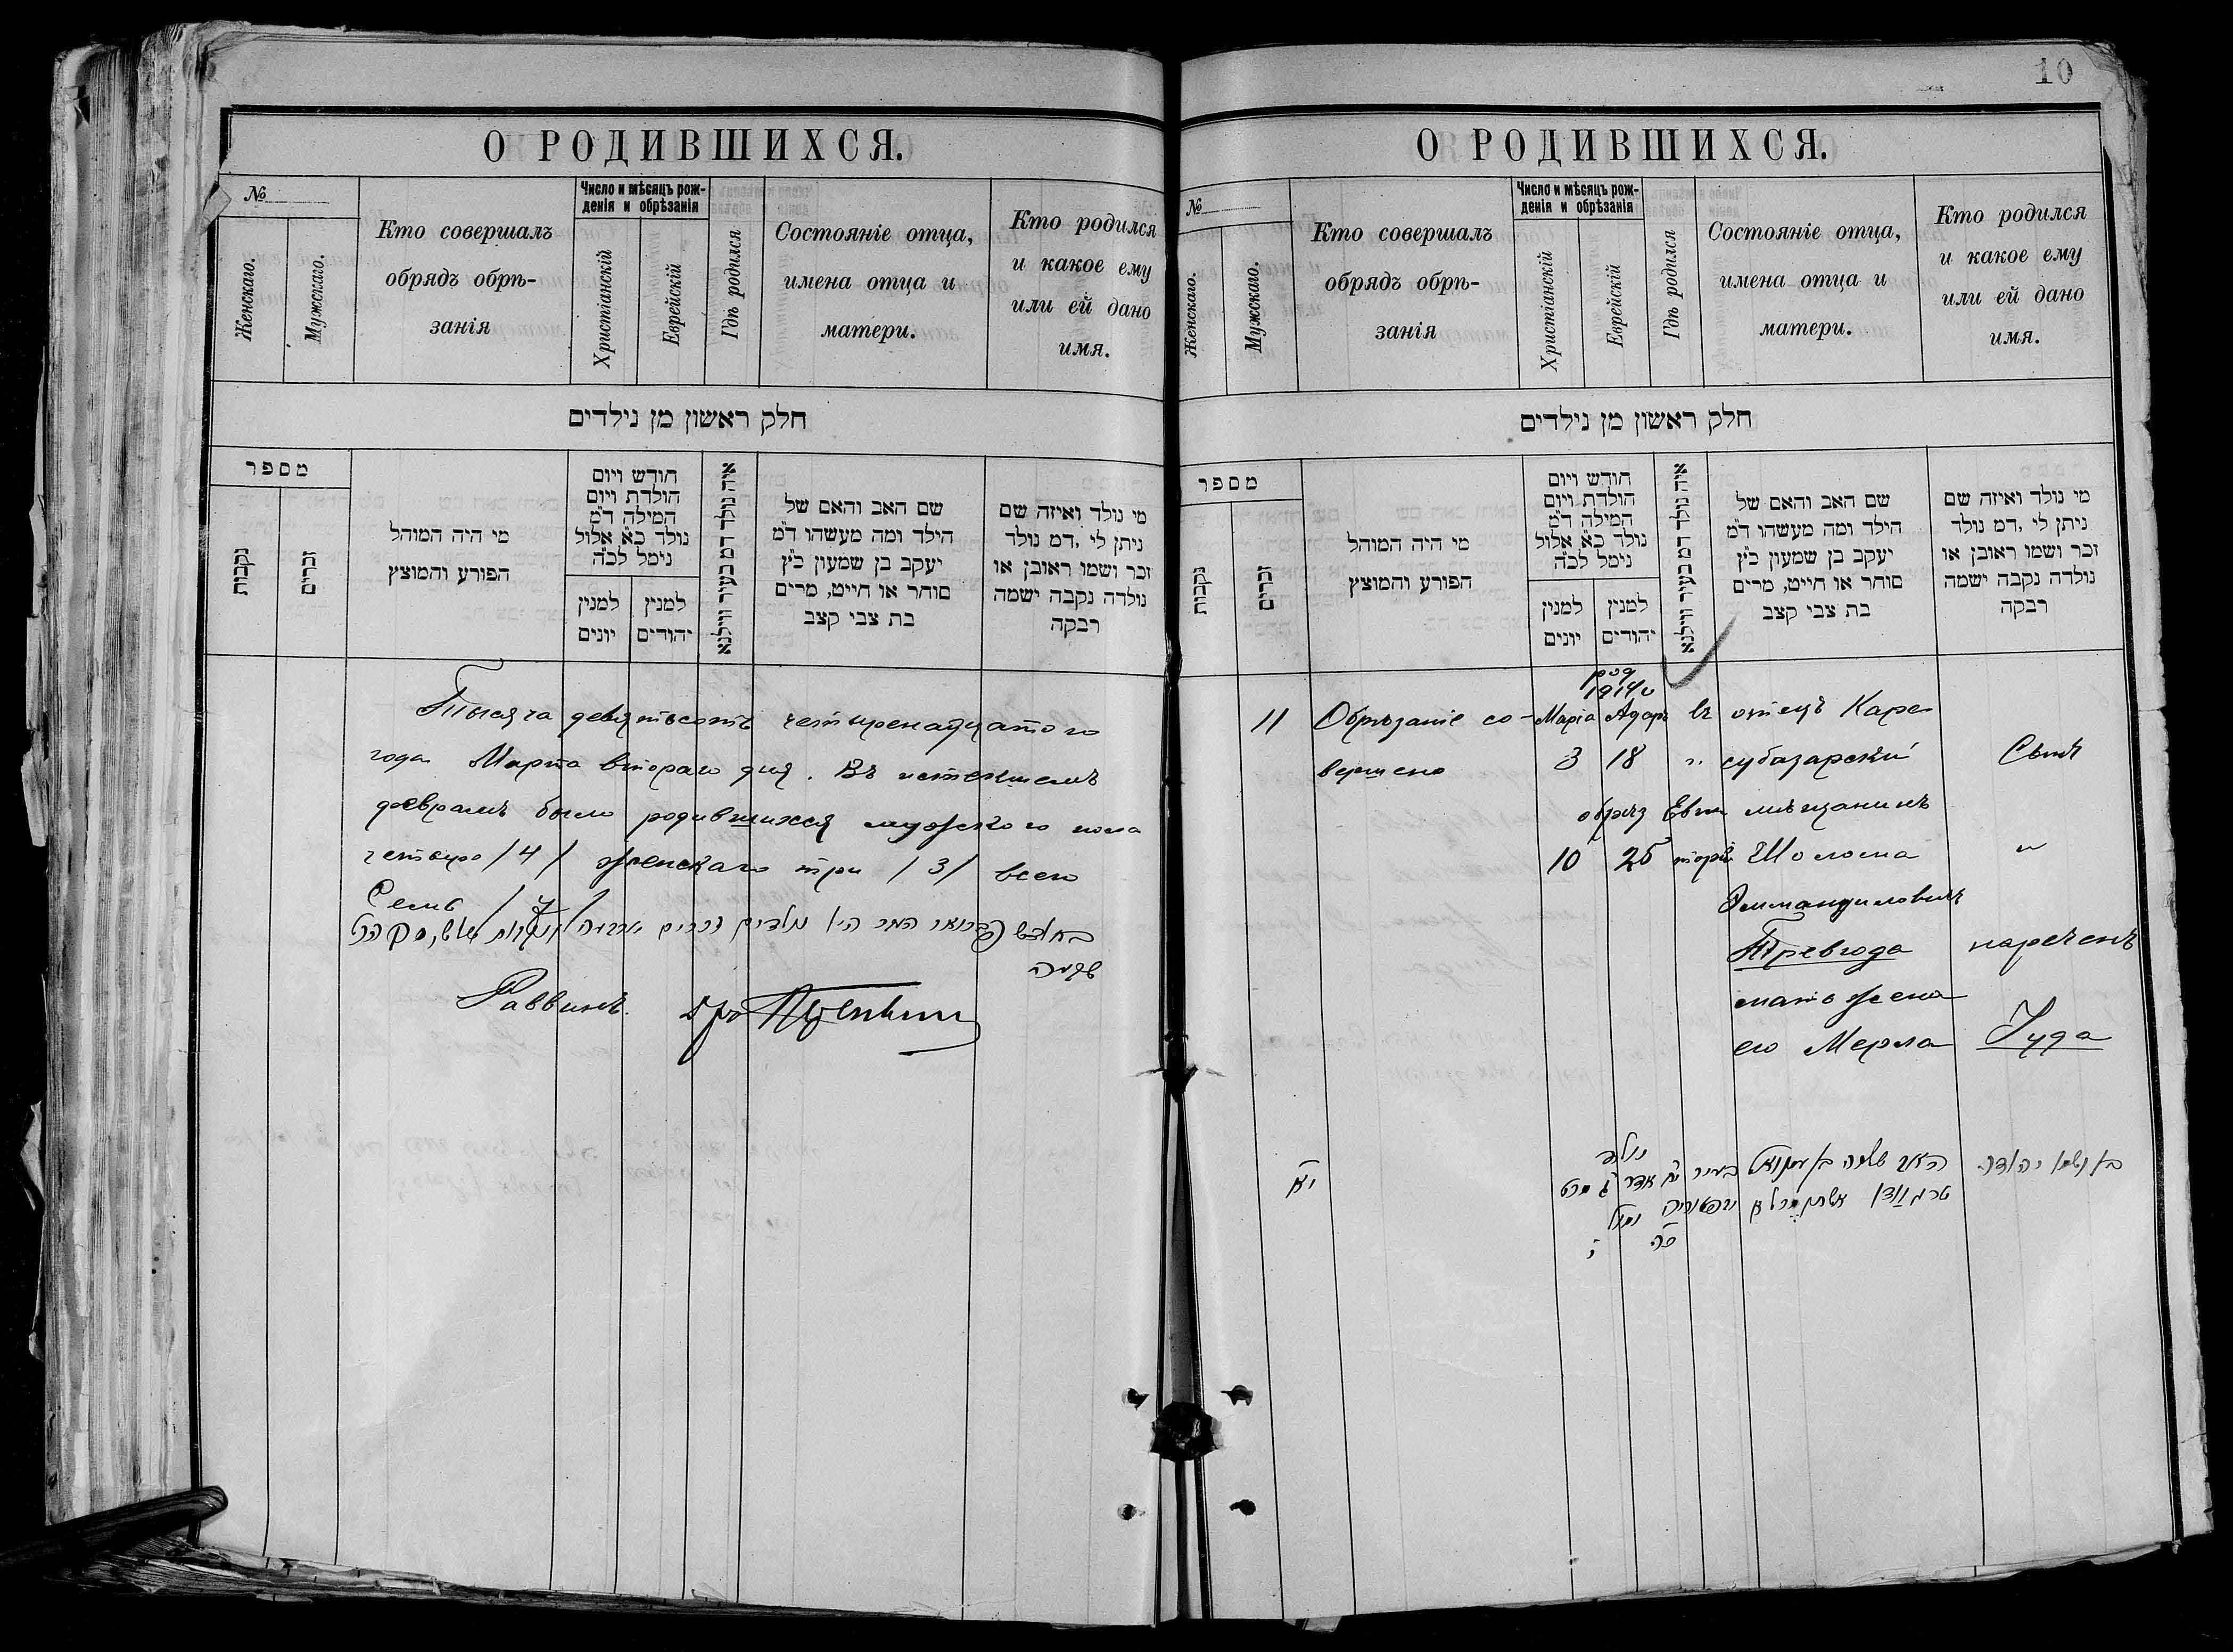 О РОДИВШИХСЯ.
№
Женскаго.
Мужскаго.
Кто совершалъ
обрядъ обрѣ-
занія
Число и мѣсяцъ рож-
денія и обрѣзанія
Христіанскій
Еврейскій
Гдѣ родился
Состояніе отца,
имена отца и
матери.
Кто родился
и какое ему
или ей дано
имя.
חלק ראשון מן נילדים
מספר
נקבות
זכרים
מי היה המוהל
הפורע והמוצץ
חודש ויום
הולדת ויום
המילה ד"מ
נולד כ"א אלול
נימל לכ"ה
למנין
יונים
למנין
יהודים
איה נולד דמ בעיר ווילנא
שם האב והאם של
הילד ומה מעשהו ד"מ
יעקב בן שמעון כ"ץ
סוחר או חייט, מרים
בת צבי קצב
מי נולד ואיזה שם
ניתן לי ,דמ נולד
זכר ושמו ראובן או
נולדה נקבה ישמה
רבקה
Тысяча девятьсотъ четырнадцатого
года Марта второго дня. Въ истекшемъ
февралѣ было родившихся мужского пола
четыре /4/ женскаго три /3/ всего
Семь /7/
שבעה
Раввинъ.
10
О РОДИВШИХСЯ.
№
Женскаго.
Мужскаго.
Кто совершалъ
обрядъ обрѣ-
занія
Число и мѣсяцъ рож-
денія и обрѣзанія
Христіанскій
Еврейскій
Гдѣ родился
Состояніе отца,
имена отца и
матери.
Кто родился
и какое ему
или ей дано
имя.
חלק ראשון מן נילדים
מספר
נקבות
זכרים
מי היה המוהל
הפורע והמוצץ
חודש ויום
הולדת ויום
המילה ד"מ
נולד כ"א אלול
נימל לכ"ה
למנין
יונים
למנין
יהודים
איה נולד דמ בעיר ווילנא
שם האב והאם של
הילד ומה מעשהו ד"מ
יעקב בן שמעון כ"ץ
סוחר או חייט, מרים
בת צבי קצב
מי נולד ואיזה שם
ניתן לי ,דמ נולד
זכר ושמו ראובן או
נולדה נקבה ישמה
רבקה
род
1914
11 Обрѣзаніе со- Марта Адаръ въ отецъ Кара-
вершено 3 18 г. субазарскій Сынъ
обрѣз Евпа мѣщанинъ
10 25 торіи Шолома "
Эммануиловичъ
Тревгода нареченъ
мать жена
его Мерла Іуда
יא
נולד
האב שלמה בן עמנואל בעיר יח אדר ג מרט
בן ושמו יהודה
נימול
כה
י